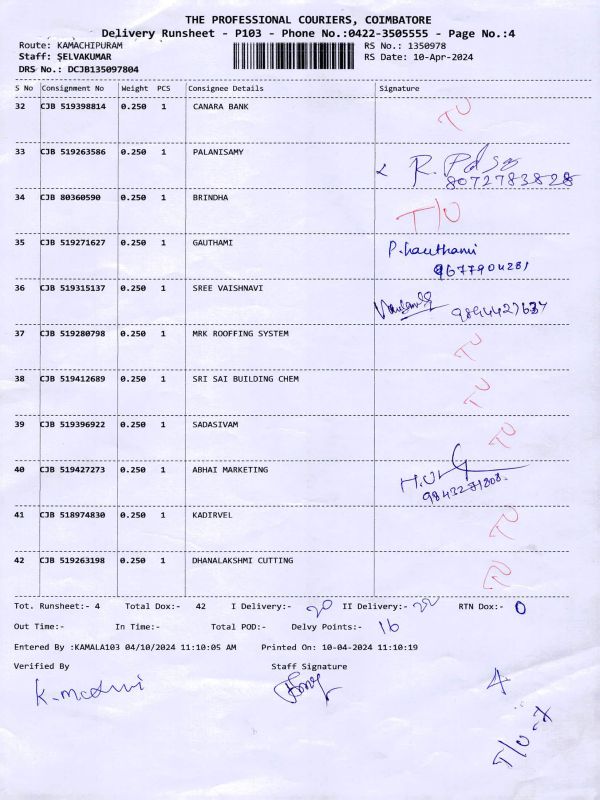 THE PROFESSIONAL COURIERS, COIMBATORE
Delivery Runsheet - P103 - Phone No.:0422-3505555 - Page No.:4
Route: KAMACHIPURAM RS No.: 1350978
Staff: SELVAKUMAR RS Date: 10-Apr-2024
DRS No.: DCJB135097804
S No Consignment No Weight PCS Consignee Details Signature
32 CJB 519398814 0.250 1 CANARA BANK TU
33 CJB 519263586 0.250 1 PALANISAMY R.
8072783828
34 CJB 80360590 0.250 1 BRINDHA T/U
35 CJB 519271627 0.250 1 GAUTHAMI P. Gauthami
9677904281
36 CJB 519315137 0.250 1 SREE VAISHNAVI 9894427637
37 CJB 519280798 0.250 1 MRK ROOFFING SYSTEM TU
38 CJB 519412689 0.250 1 SRI SAI BUILDING CHEM TU
39 CJB 519396922 0.250 1 SADASIVAM TU
40 CJB 519427273 0.250 1 ABHAI MARKETING
9843271808.
41 CJB 518974830 0.250 1 KADIRVEL TU
42 CJB 519263198 0.250 1 DHANALAKSHMI CUTTING TU
Tot. Runsheet:- 4 Total Dox:- 42 I Delivery:- 20 II Delivery:- 22 RTN Dox:- 0
Out Time:- In Time:- Total POD:- Delvy Points:- 16
Entered By :KAMALA103 04/10/2024 11:10:05 AM Printed On: 10-04-2024 11:10:19
Verified By Staff Signature
4
T/U-7